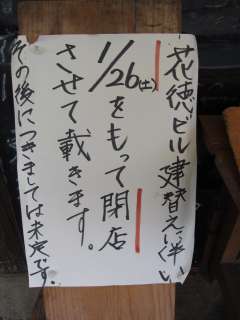 花徳ビル建替えに伴い
1/26(土)をもって閉店
させて戴きます。
その後につきましては未定です。